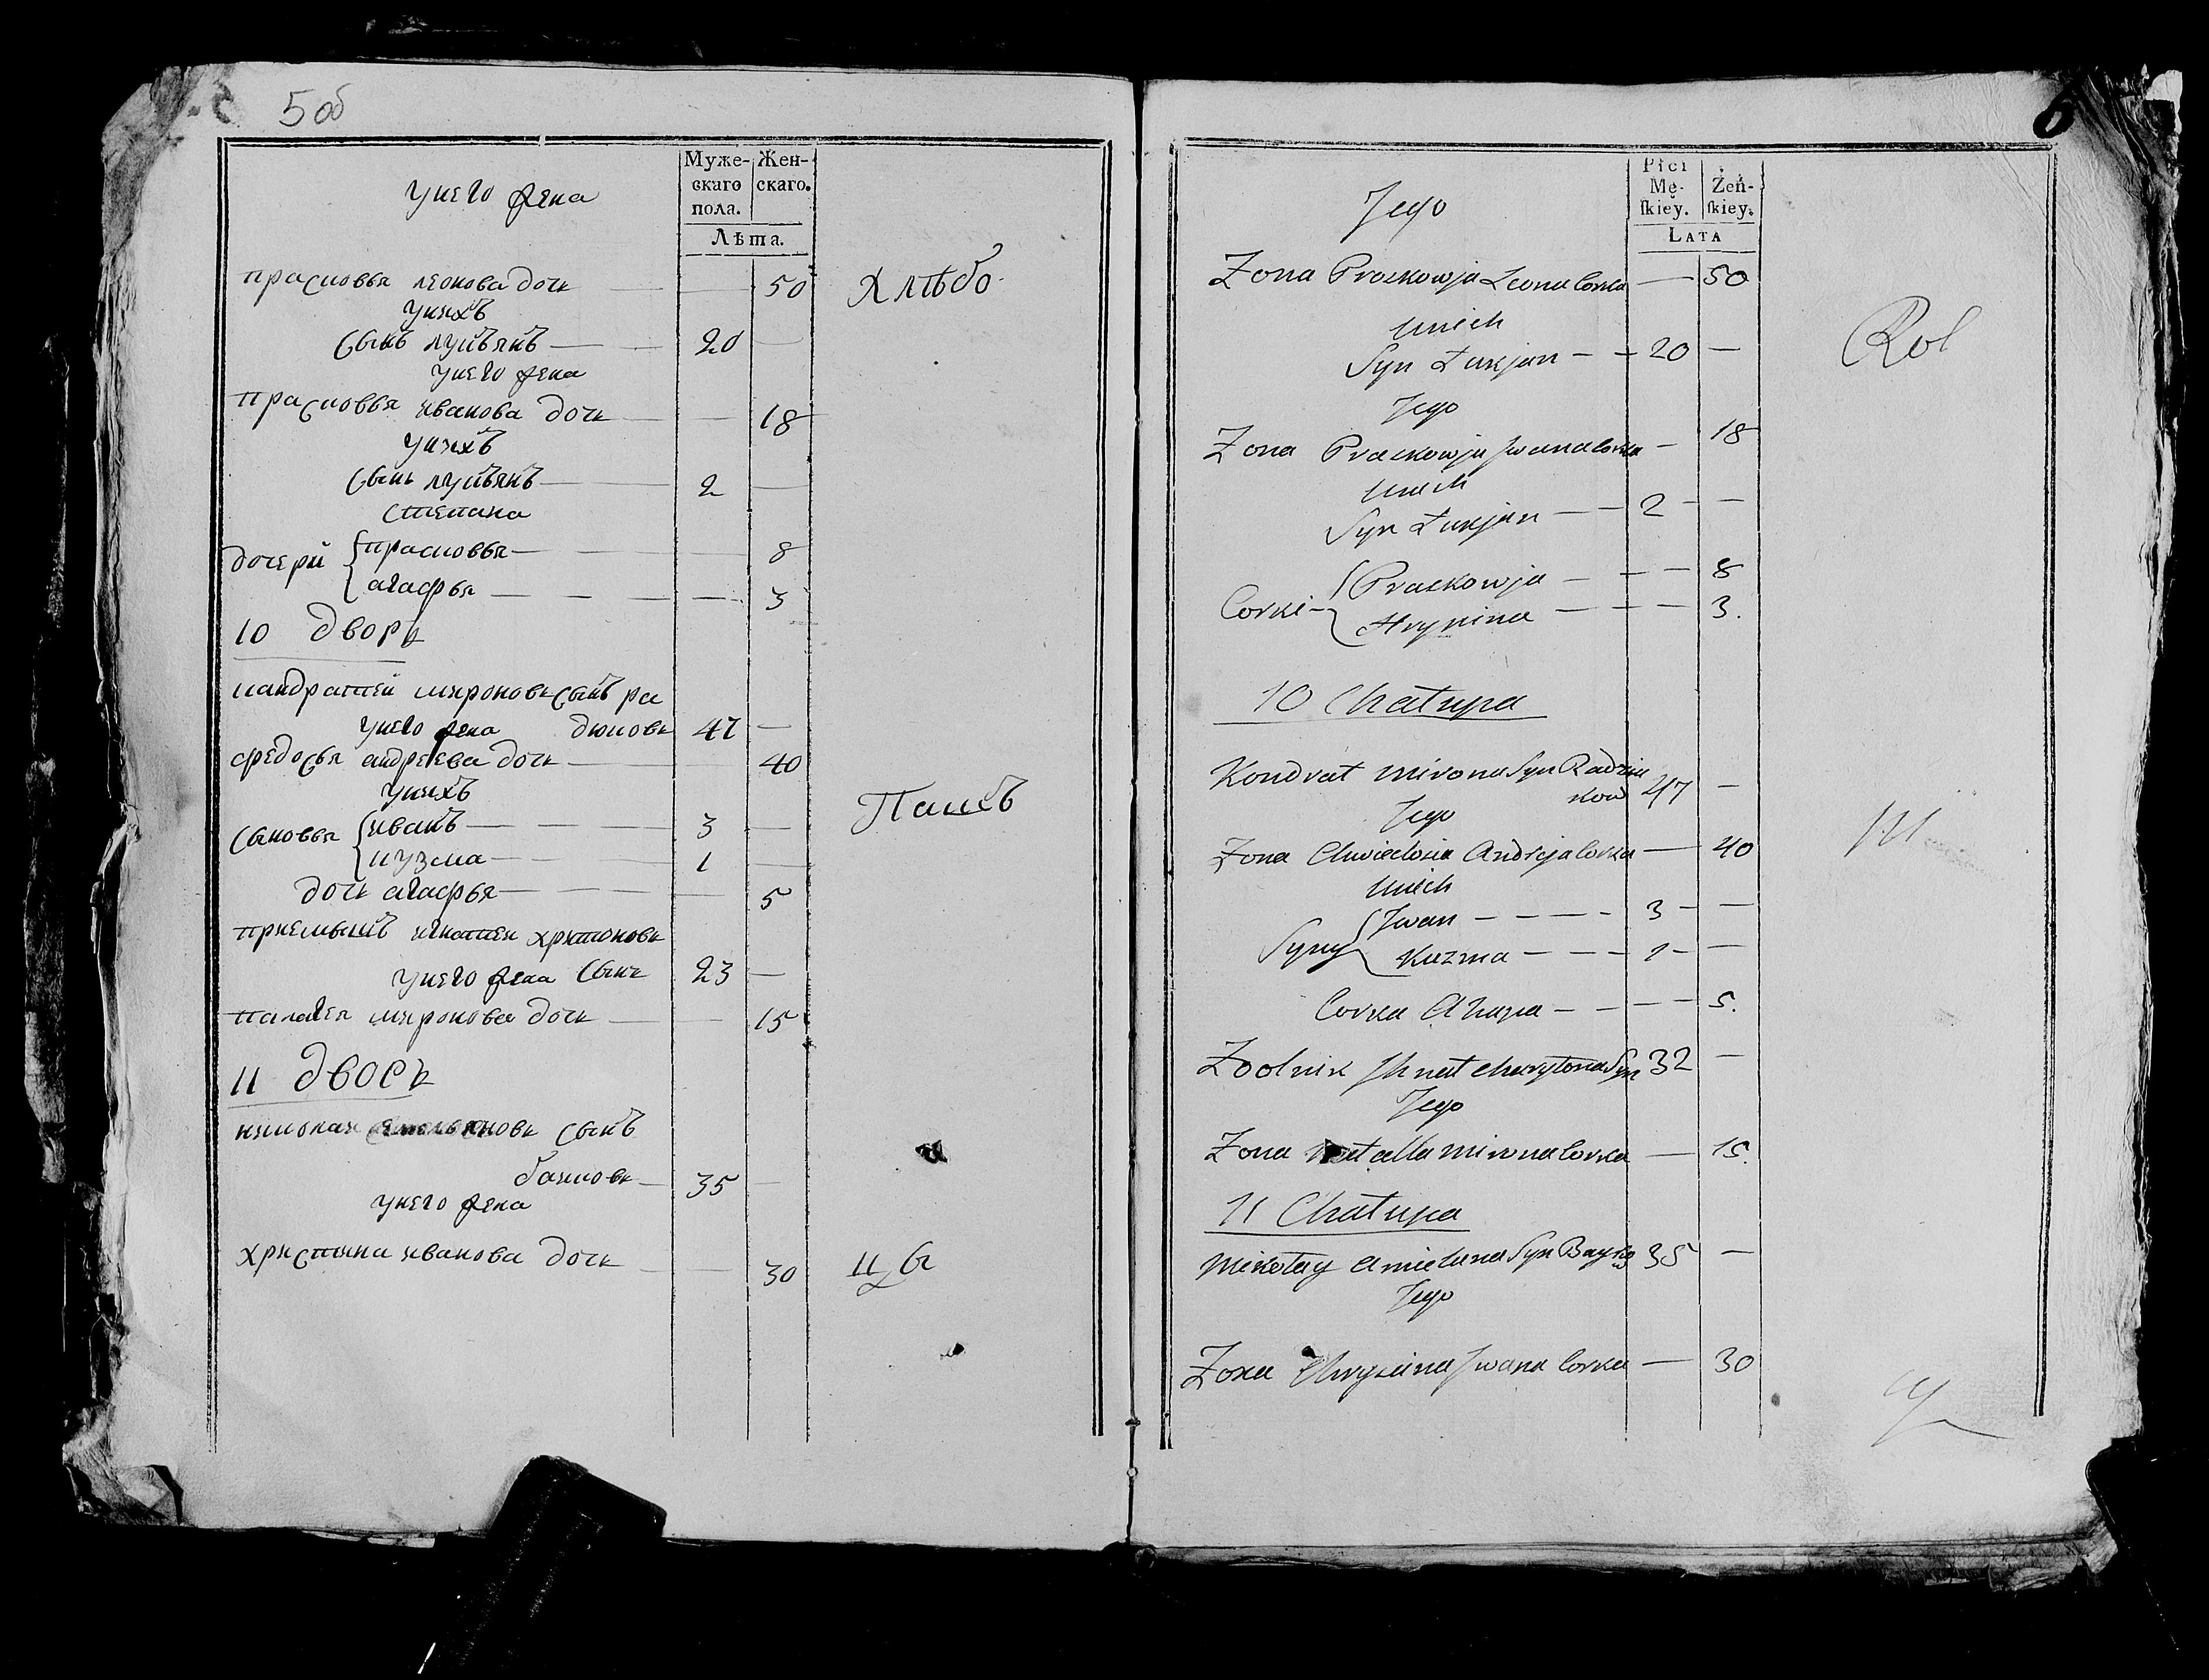 5 об
Муже- Жен-
скаго скаго.
пола.
Лѣта.
унего жена
прасковья леонова дочь — 50 Хлѣбо
унихъ
сынъ лукъянъ — 20 —
унего жена
прасковья иванова дочь — 18
унихъ
сынъ лукъянъ — 2 —
степана
дочери { прасковья — 8
агафья — 3
10 дворъ
кандратей мироновъ сынъ ра
унего жена дюковъ 47 —
федосья андреева дочь — 40
унихъ
сыновья { иванъ — 3 — Пашъ
кузма — 1 —
дочь агафья — 5
приемышъ игнатей хритоновъ
унего жена сынъ 23 —
палагея миронова дочь — 15
11 дворъ
николай емельяновъ сынъ
баиковъ — 35 —
унего жена
християна иванова дочь — 30
6
Płci
Mę- Żeń-
skiey. skiey.
LATA
Jego
Zona Praskowja Leona Corka — 50
Unich
Syn Łukjan — 20 — Rol
Jego
Zona Praskowja Jwana Corka — 18
Unich
Syn Łukjan — 2 —
Corki { Praskowja — 8
Hrypina — 3.
10 Chałupa
Kondrat Mirona Syn Radziu
kow 47 —
Jego
Zona Chwiedosia Andreja Corka — 40
Unich
Syny { Jwan — 3 —
Kuzma — 1 —
Corka Ahapa — 5.
Zdolnik Jhnat Charytona Syn 32 —
Jego
Zona Natalla Mirona Corka — 15.
11 Chałupa
Mikołay Amielana Syn Bayko 35 —
Jego
Zona Chrysina Jwana Corka — 30